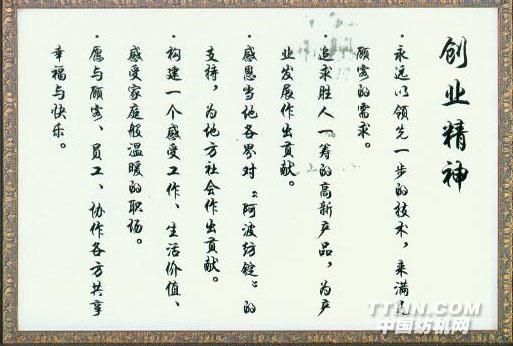 创业精神
·永远以领先一步的技术，来满足
顾客的需求。
·追求胜人一筹的高新产品，为产
业发展作出贡献。
·感恩当地各界对“阿波纺锭”的
支持，为地方社会作出贡献。
·构建一个感受工作、生活价值、
感受家庭般温暖的职场。
·愿与顾客、员工、协作各方共享
幸福与快乐。
TTMN.COM
中国纺机网